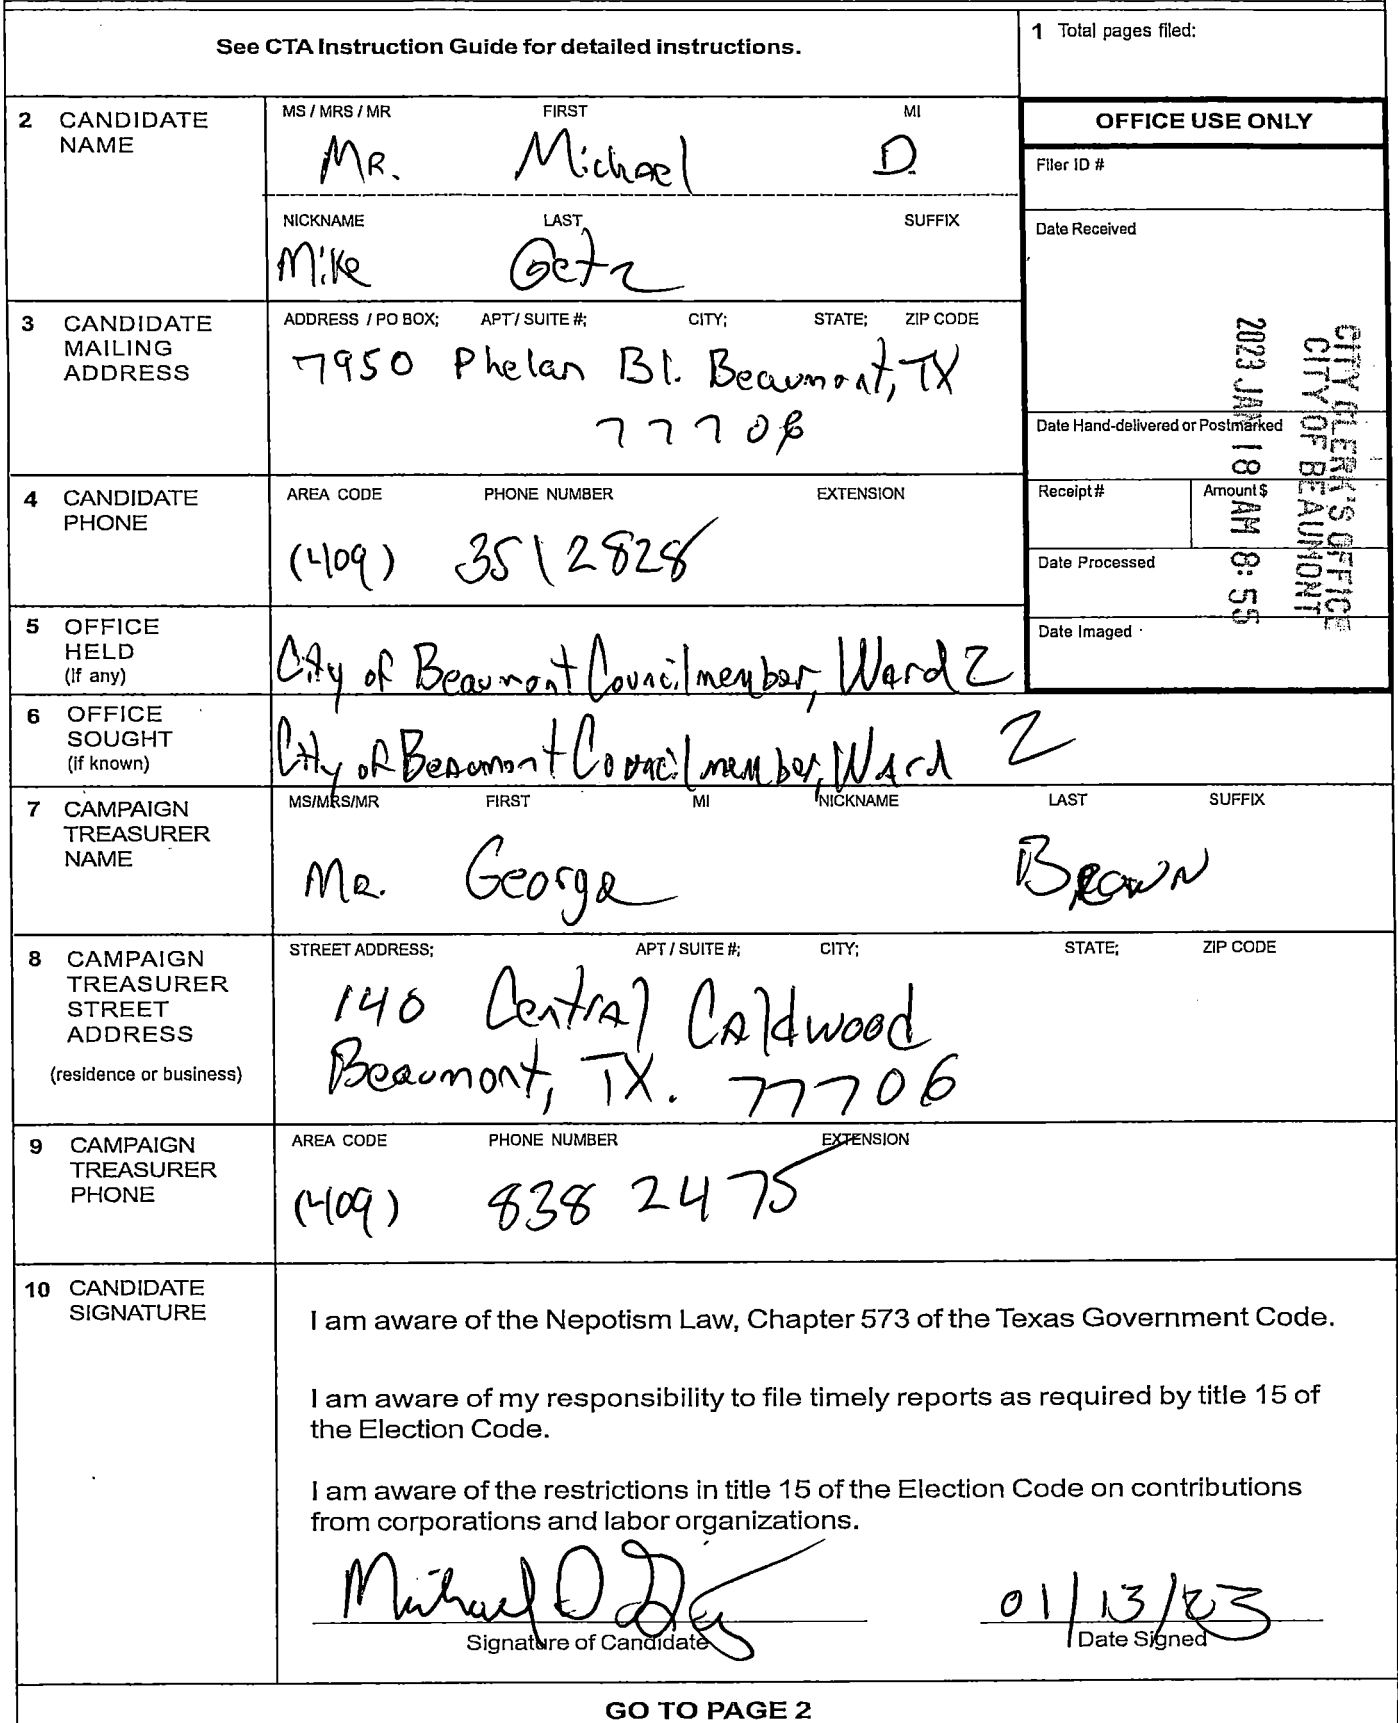 See CTA Instruction Guide for detailed instructions.
1 Total pages filed:
2 CANDIDATE NAME
MS / MRS / MR FIRST MI
MR. Michael D.
NICKNAME LAST SUFFIX
Mike Getz
OFFICE USE ONLY
Filer ID #
Date Received
CITY CLERK'S OFFICE
CITY OF BEAUMONT
2023 JAN 18 AM 8:55
Date Hand-delivered or Postmarked
Receipt # Amount $
Date Processed
Date Imaged
3 CANDIDATE MAILING ADDRESS
ADDRESS / PO BOX; APT / SUITE #; CITY; STATE; ZIP CODE
7950 Phelan Bl. Beaumont, TX
77706
4 CANDIDATE PHONE
AREA CODE PHONE NUMBER EXTENSION
(409) 351 2828
5 OFFICE HELD (if any)
City of Beaumont Councilmember, Ward 2
6 OFFICE SOUGHT (if known)
City of Beaumont Councilmember, Ward 2
7 CAMPAIGN TREASURER NAME
MS/MRS/MR FIRST MI NICKNAME LAST SUFFIX
Mr. George Brown
8 CAMPAIGN TREASURER STREET ADDRESS (residence or business)
STREET ADDRESS; APT / SUITE #; CITY; STATE; ZIP CODE
140 Central Caldwood
Beaumont, TX. 77706
9 CAMPAIGN TREASURER PHONE
AREA CODE PHONE NUMBER EXTENSION
(409) 838 2475
10 CANDIDATE SIGNATURE
I am aware of the Nepotism Law, Chapter 573 of the Texas Government Code.
I am aware of my responsibility to file timely reports as required by title 15 of
the Election Code.
I am aware of the restrictions in title 15 of the Election Code on contributions
from corporations and labor organizations.
Michael D Getz 01/13/23
Signature of Candidate Date Signed
GO TO PAGE 2